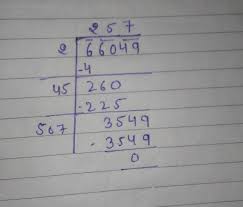 257
2 66049
-4
45 260
-225
507 3549
-3549
0